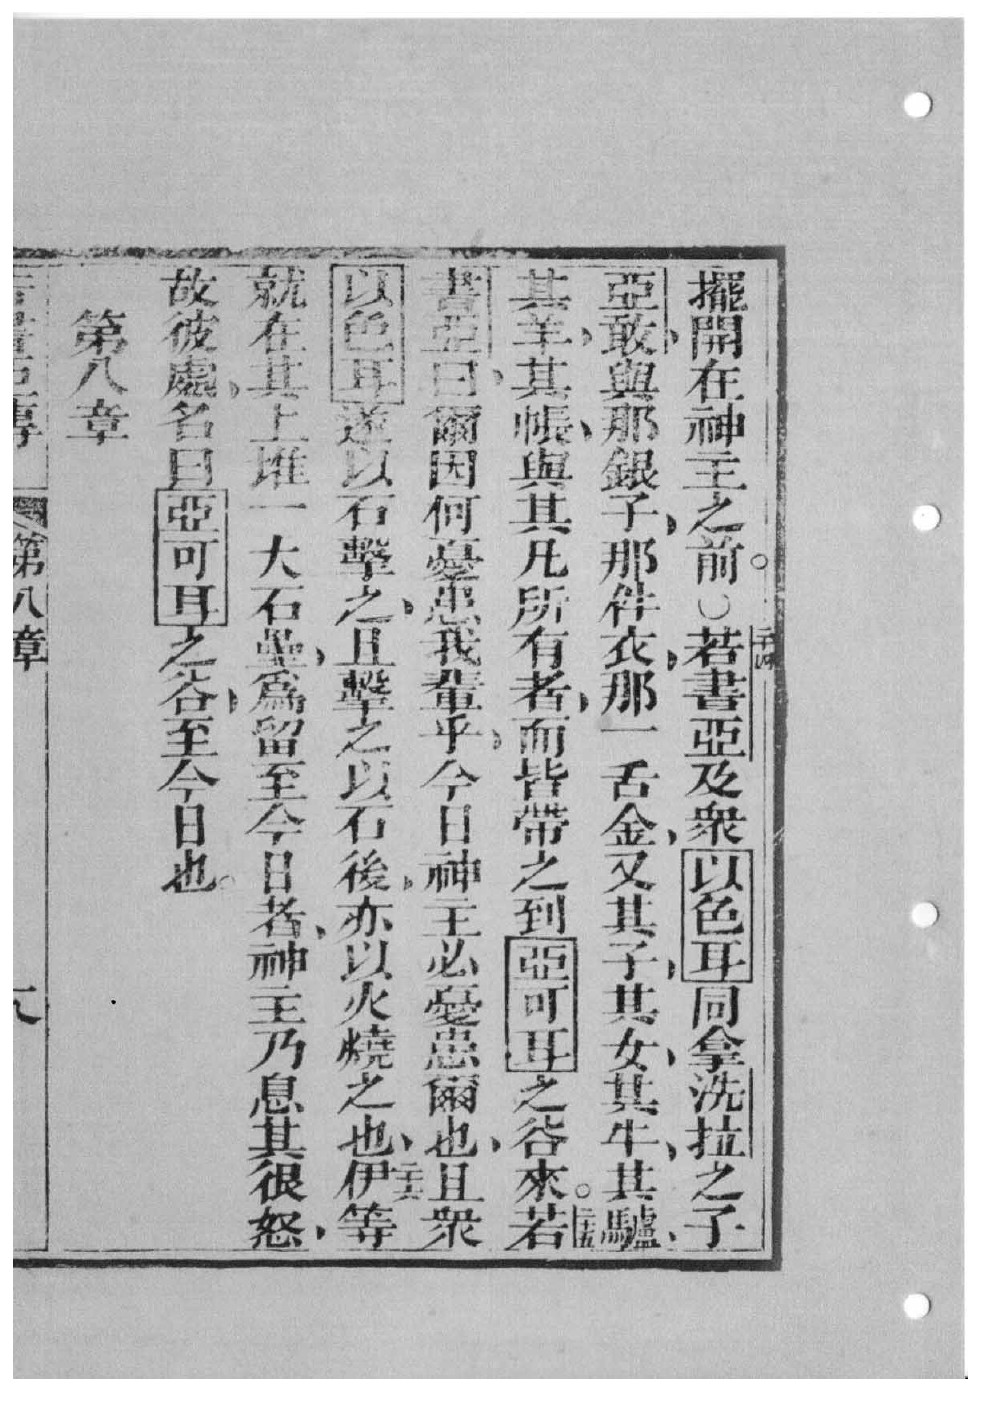 擺開在神主之前。○若書亞及衆以色耳同拿洗拉之子
亞敢、與那銀子、那件衣、那一舌金、又其子、其女、其牛、其驢、
其羊、其帳、與其凡所有者、而皆帶之到亞可耳之谷來。若
書亞曰、爾因何憂患我輩乎、今日神主必憂患爾也、且衆
以色耳遂以石擊之、且擊之以石後、亦以火燒之也、伊等
就在其上堆一大石壘、爲留至今日者、神主乃息其很怒、
故彼處、名曰亞可耳之谷、至今日也。
第八章
第八章